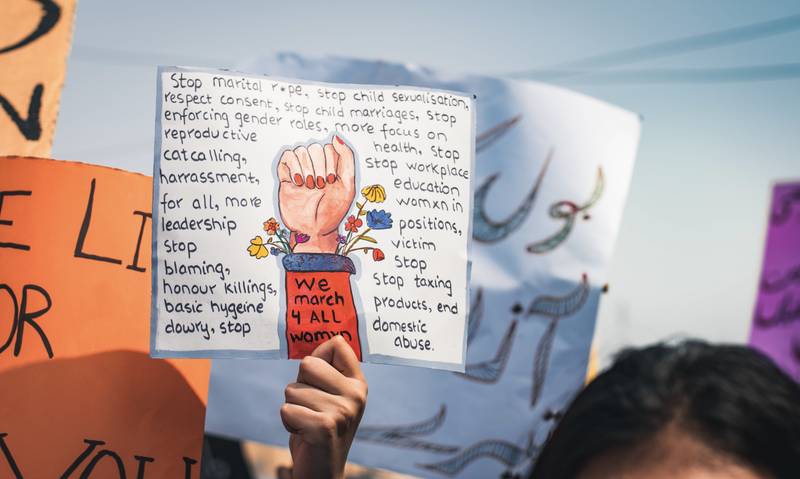 Stop marital r*pe, stop child sexualisation,
respect consent, stop child marriages, stop
enforcing gender roles, more focus on
reproductive health, stop
catcalling, stop workplace
harrassment, education
for all, more womxn in
leadership positions,
stop victim
blaming, stop
honour killings, stop taxing
basic hygeine products, end
dowry, stop domestic
abuse.
We
march
4 ALL
womxn
E LI
OR
YOU
بول